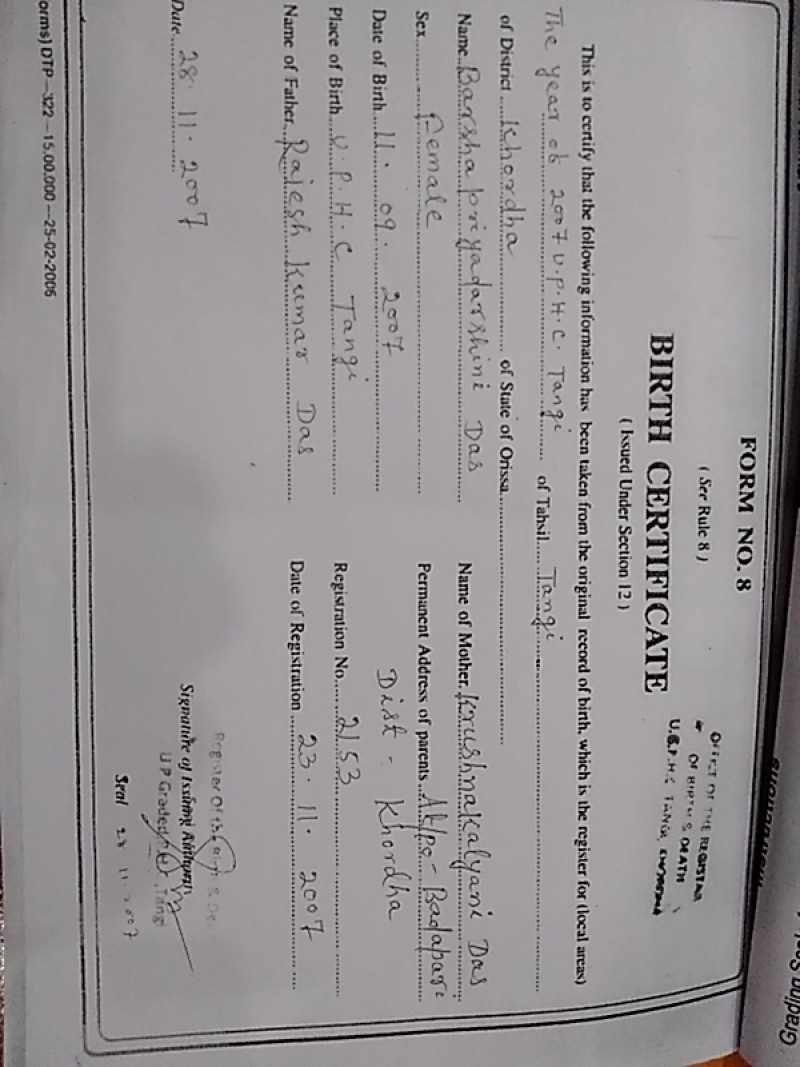 FORM NO. 8
( See Rule 8 )
OFFICE OF THE REGISTRAR
OF BIRTH & DEATH
TANGI,
BIRTH CERTIFICATE
( Issued Under Section 12 )
This is to certify that the following information has been taken from the original record of birth, which is the register for (local areas)
The year ob 2007 U.P.H.C. Tangi of Tahsil Tangi
of District Khordha of State of Orissa
Name Barshapriyadarshini Das Name of Mother Krushnakalyani Das
Sex Female Permanent Address of parents At/po - Badapari
Date of Birth 11. 09. 2007 Dist - Khordha
Place of Birth U.P.H.C Tangi Registration No. 2153
Name of Father Rajesh kumar Das Date of Registration 23. 11. 2007
Date 28. 11. 2007 Signature of Issuing Authority
U P Graded Tangi
Seal 28 11 2007
orms) DTP-322-15,00,000-25-02-2006